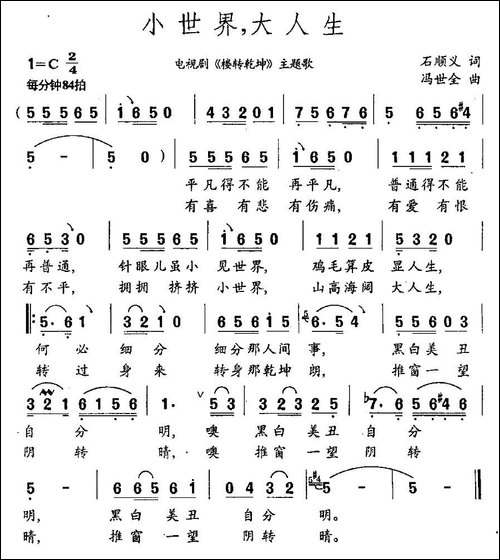 小世界,大人生
1=C 2/4
电视剧《楼转乾坤》主题歌
石顺义 词
冯世全 曲
每分钟84拍
(5 5 5 6 5 | 1 6 5 0 | 4 0 4 0 | 7 5 6 7 6 | 5 6 5 #4 |
5 - | 5 0) | 5 5 5 6 5 | 1 6 5 0 | 1 1 1 2 1 |
平凡得不能 再平凡, 普通得不能
有喜有悲 有伤痛, 有爱有恨
6 5 3 0 | 5 5 5 6 5 | 3 2 5 0 | 1 1 2 1 | 3 5 6 0 |
再普通, 针眼儿虽小 见世界, 鸡毛算皮 显人生,
有不平, 拥拥挤挤 小世界, 山高海阔 大人生,
5· 6 1 | 3 2 1 0 | 6 5 6 1 5 | 6· 5 4 | 5 5 6 0 3 |
何必细分 细分那人间事, 黑白美丑
转过身来 转身那乾坤朗, 推窗一望
3 2 1 6 1 6 5 6 | 1· 5 3 | 3 2 3 2 5 | 2 3 2 2 | b7· 6 5 6 #4 |
自分明,噢黑白美丑自分
阴转晴,噢推窗一望阴转
5 - | 6 6 5 6 1 | 0 4 3 2 | #4 5 - | 5 0 |
明, 黑白美丑 自分明。
晴, 推窗一望 阴转晴。